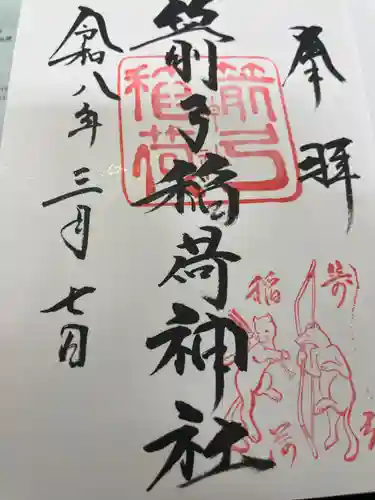 奉拝
箭弓稲荷神社
令和八年三月七日
箭弓
稲荷
箭
弓
稲
荷